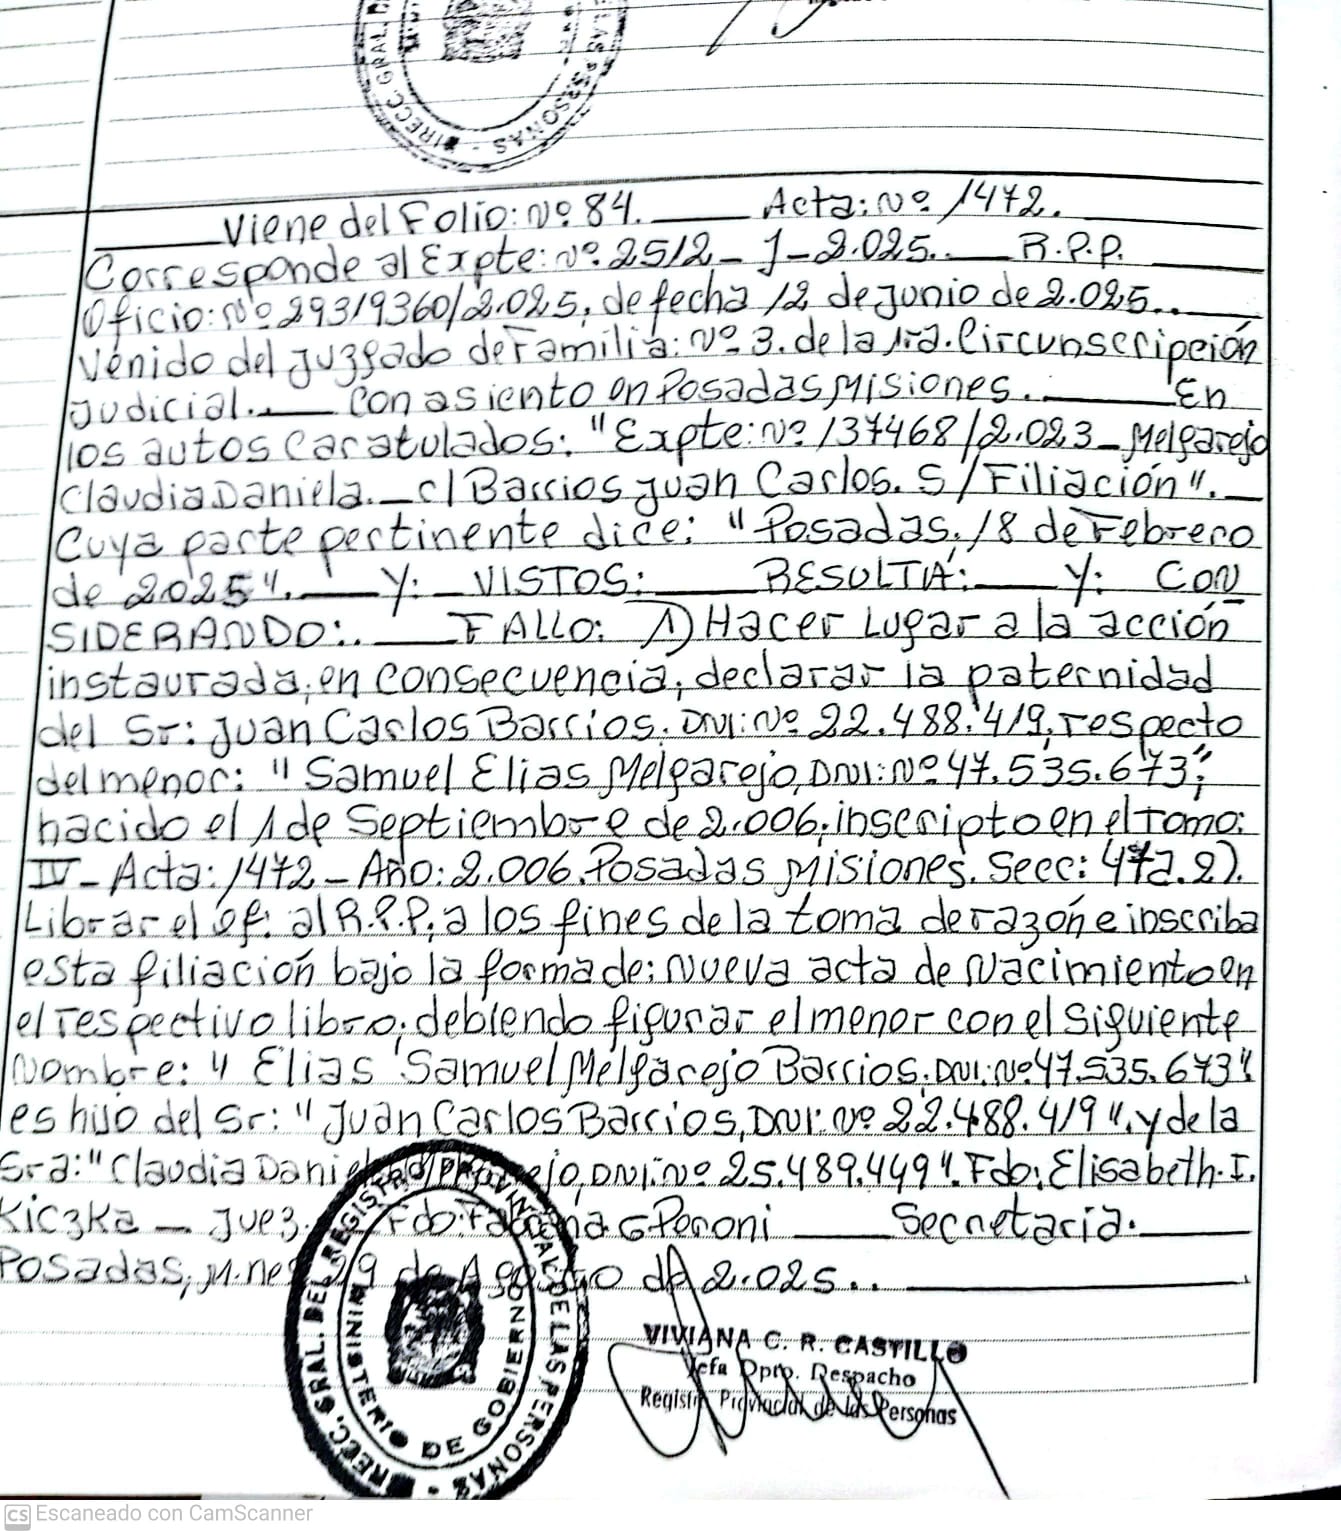 DIRECC. GRAL. DE LAS PERSONAS
Viene del Folio: Nº 84. Acta: Nº 1472.
Corresponde al Expte: Nº 2512 - J - 2.025.. R.P.P.
Oficio: Nº 29319360/2.025, de fecha 12 de junio de 2.025..
Venido del Juzgado de Familia: Nº 3. de la 1ra. Circunscripción
Judicial.. Con asiento en Posadas Misiones. En
los autos Caratulados: "Expte: Nº 137468/2.023 - Melgarejo
Claudia Daniela. - c/ Barrios Juan Carlos. S/Filiación".
Cuya parte pertinente dice: "Posadas, 18 de Febrero
de 2025". Y: VISTOS: RESULTA: Y: CON
SIDERANDO:. FALLO: 1) Hacer Lugar a la acción
instaurada, en consecuencia, declarar la paternidad
del Sr: Juan Carlos Barrios. DNI: Nº 22.488.419, respecto
del menor: "Samuel Elias Melgarejo, DNI: Nº 47.535.673",
nacido el 1 de Septiembre de 2.006, inscripto en el Tomo:
IV - Acta: 1472 - Año: 2.006. Posadas Misiones. Secc: 4ta. 2).
Librar el of. al R.P.P, a los fines de la toma de razón e inscriba
esta filiación bajo la forma de: Nueva acta de Nacimiento en
el respectivo libro, debiendo figurar el menor con el Siguiente
Nombre: "Elias Samuel Melgarejo Barrios. DNI. Nº 47.535.673"
es hijo del Sr: "Juan Carlos Barrios, DNI: Nº 22.488.419", y de la
Sra: "Claudia Daniela Melgarejo, DNI: Nº 25.489.449". Fdo: Elisabeth. I.
Kiczka - Juez. Fdo: Fabiana G Peroni Secretaria.
Posadas, M.nes 29 de Agosto de 2.025..
DIRECC. GRAL. DEL REGISTRO PROVINCIAL DE LAS PERSONAS
MINISTERIO DE GOBIERNO
VIVIANA C. R. CASTILLO
Jefa Dpto. Despacho
Registro Provincial de las Personas
CS Escaneado con CamScanner